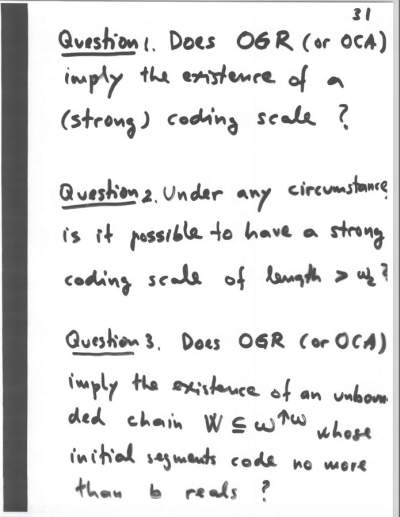 31
Question 1. Does OGR (or OCA)
imply the existence of a
(strong) coding scale ?
Question 2. Under any circumstance
is it possible to have a strong
coding scale of length > ω₂ ?
Question 3. Does OGR (or OCA)
imply the existence of an unboun
ded chain W ⊆ ω^↑ω whose
initial segments code no more
than b reals ?